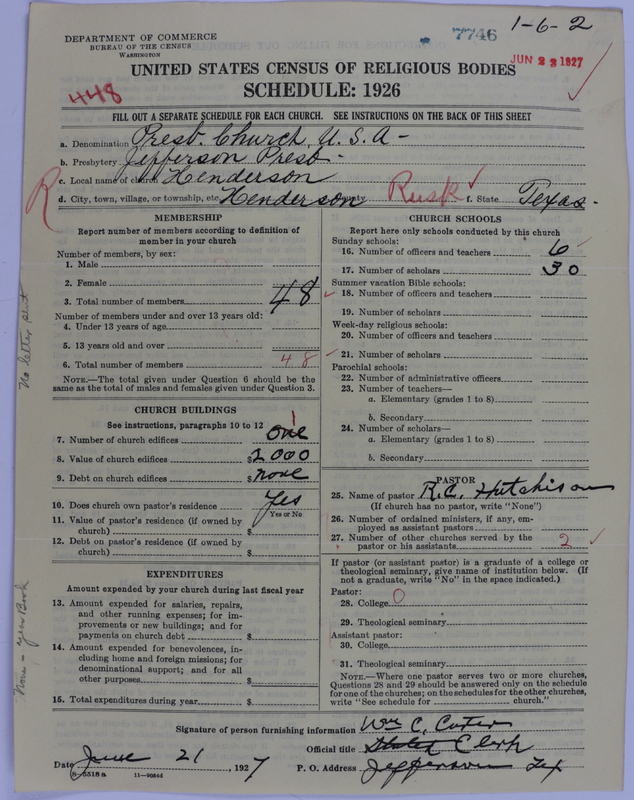 1-6-2
DEPARTMENT OF COMMERCE
BUREAU OF THE CENSUS
WASHINGTON
7746
JUN 23 1927
UNITED STATES CENSUS OF RELIGIOUS BODIES
SCHEDULE: 1926
448
FILL OUT A SEPARATE SCHEDULE FOR EACH CHURCH. SEE INSTRUCTIONS ON THE BACK OF THIS SHEET
a. Denomination Presb. Church U.S.A-
b. Presbytery Jefferson Presb-
c. Local name of church Henderson
R
d. City, town, village, or township, etc. Henderson County Rusk f. State Texas-
MEMBERSHIP
Report number of members according to definition of
member in your church
Number of members, by sex:
1. Male
2. Female
3. Total number of members 48
Number of members under and over 13 years old:
4. Under 13 years of age
5. 13 years old and over
6. Total number of members 48
NOTE.—The total given under Question 6 should be the
same as the total of males and females given under Question 3.
CHURCH BUILDINGS
See instructions, paragraphs 10 to 12
7. Number of church edifices one 1
8. Value of church edifices $2000
9. Debt on church edifices $none
10. Does church own pastor's residence yes
Yes or No
11. Value of pastor's residence (if owned by
church) $
12. Debt on pastor's residence (if owned by
church) $
EXPENDITURES
Amount expended by church during last fiscal year
13. Amount expended for salaries, repairs,
and other running expenses; for im-
provements or new buildings; and for
payments on church debt $
14. Amount expended for benevolences, in-
cluding home and foreign missions; for
denominational support; and for all
other purposes $
15. Total expenditures during year $
CHURCH SCHOOLS
Report here only schools conducted by this church
Sunday schools:
16. Number of officers and teachers 6
17. Number of scholars 30
Summer vacation Bible schools:
18. Number of officers and teachers
19. Number of scholars
Week-day religious schools:
20. Number of officers and teachers
21. Number of scholars
Parochial schools:
22. Number of administrative officers
23. Number of teachers—
a. Elementary (grades 1 to 8)
b. Secondary
24. Number of scholars—
a. Elementary (grades 1 to 8)
b. Secondary
PASTOR
25. Name of pastor R.C. Hutchison
(If church has no pastor, write "None")
26. Number of ordained ministers, if any, em-
ployed as assistant pastors
27. Number of other churches served by the
pastor or his assistants 2
If pastor (or assistant pastor) is a graduate of a college or
theological seminary, give name of institution below. (If
not a graduate, write "No" in the space indicated.)
Pastor:
28. College 0
29. Theological seminary
Assistant pastor:
30. College
31. Theological seminary
NOTE.—Where one pastor serves two or more churches,
Questions 28 and 29 should be answered only on the schedule
for one of the churches; on the schedules for the other churches,
write "See schedule for church."
Signature of person furnishing information Wm C. Cater
Official title Stated Clerk
Date June 21, 1927 P. O. Address Jefferson Tex
8-5518a 11-9084d
No letter sent
None - year Book